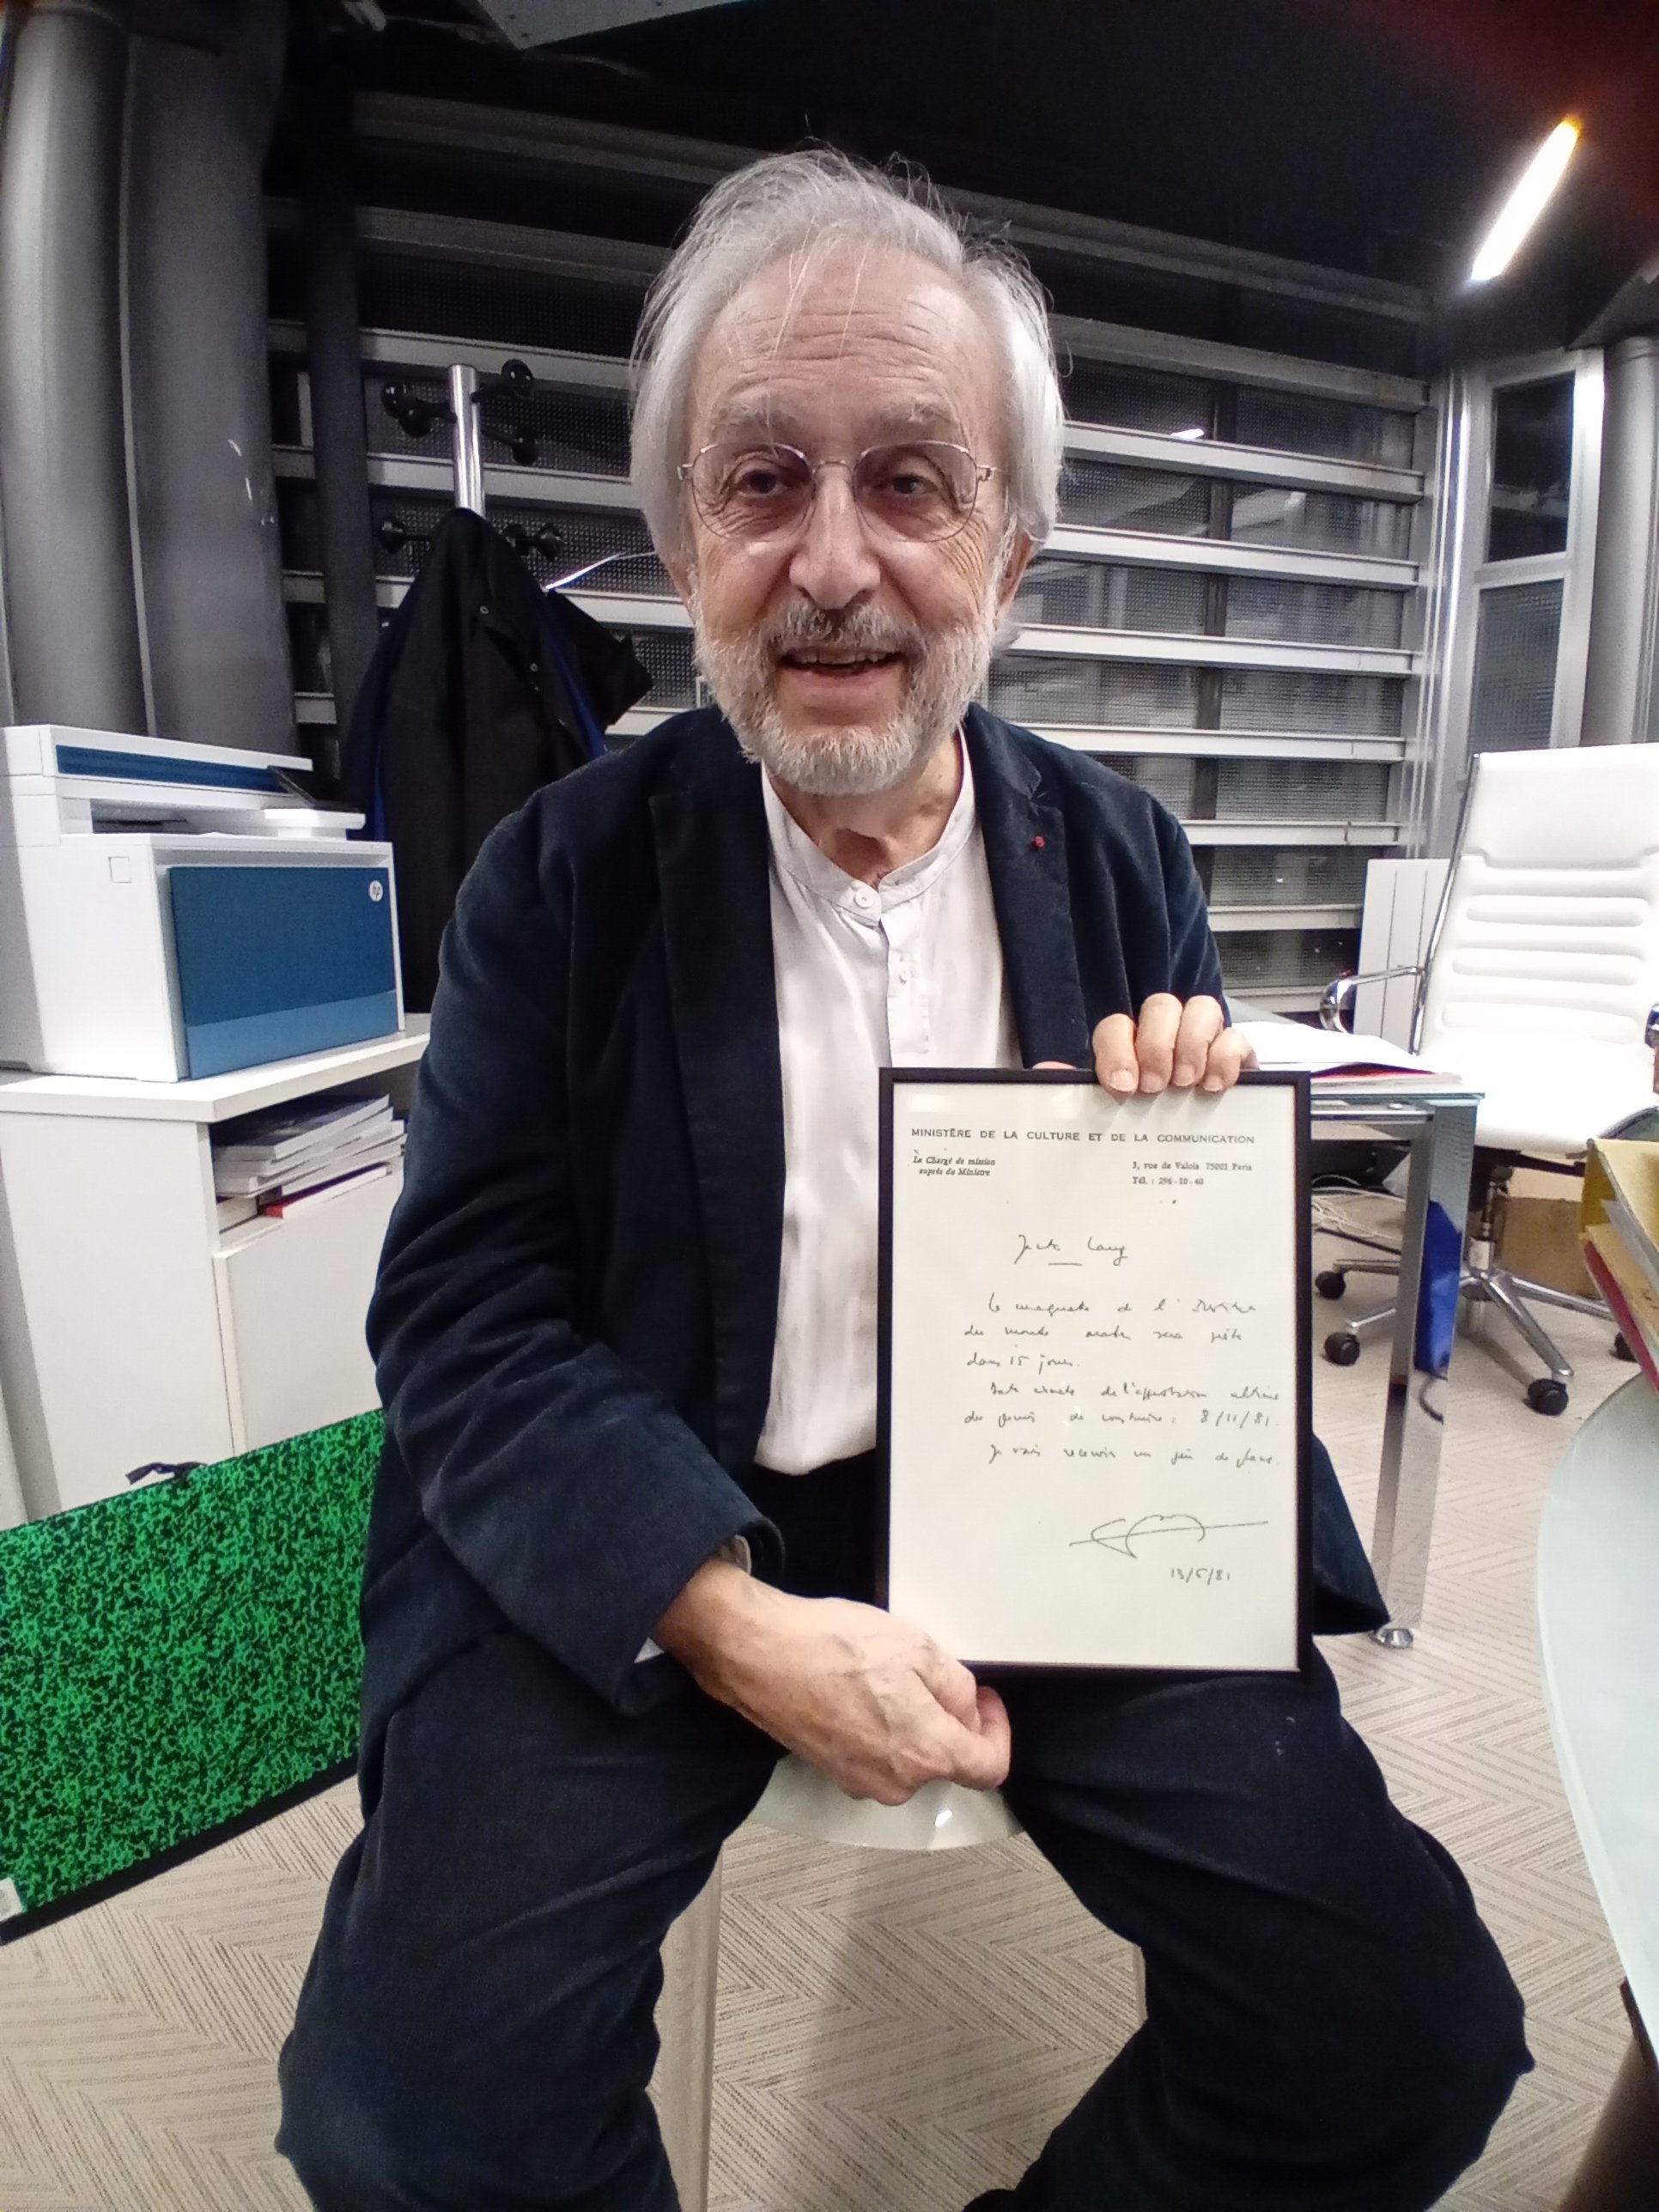 hp
MINISTÈRE DE LA CULTURE ET DE LA COMMUNICATION
Le Chargé de mission
auprès du Ministre
3, rue de Valois 75001 Paris
Tél. : 296-10-40
Jack Lang
La maquette de l'Institut
du monde arabe sera prête
dans 15 jours.
Date de l'approbation ultime
du permis de construire : 8/11/81.
Je vais recevoir un jeu de plans.
13/5/81